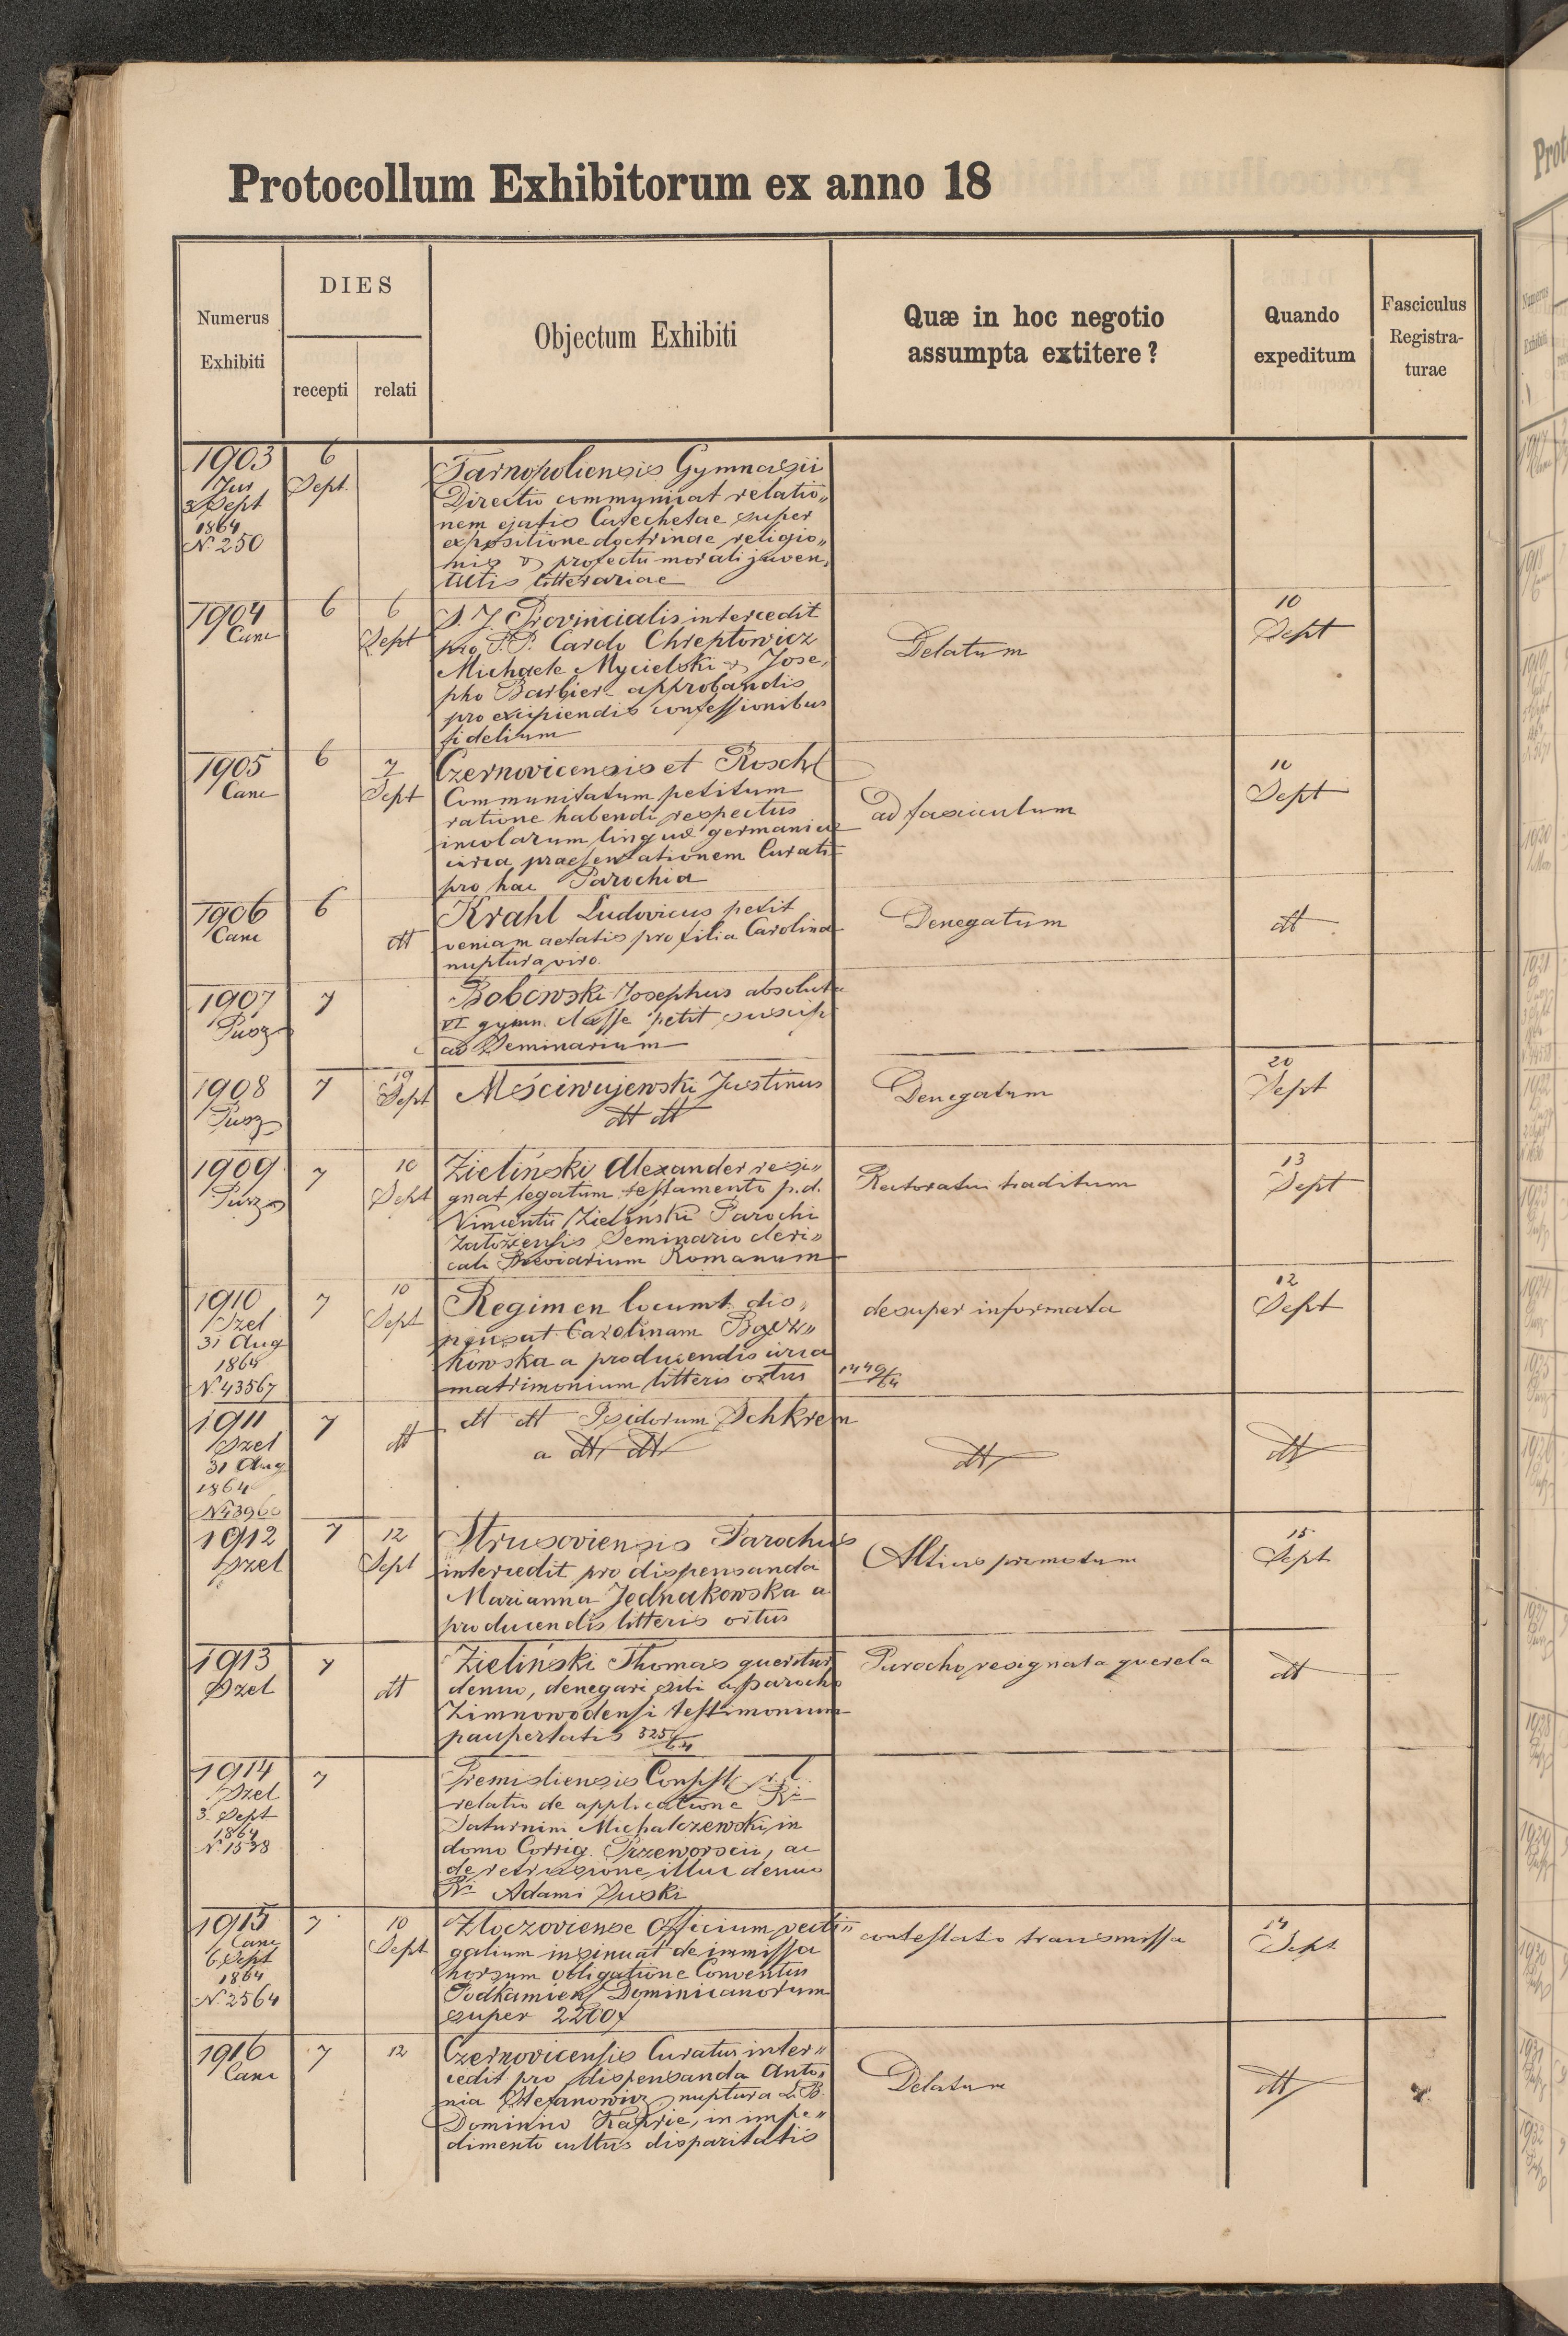 Protocollum Exhibitorum ex anno 18
Numerus Exhibiti
DIES
recepti
relati
Objectum Exhibiti
Quæ in hoc negotio
assumpta extitere?
Quando
expeditum
Fasciculus
Registra-
turae
1903
Jus
3 Sept
1864
N. 250
6
Sept.
Tarnopoliensis Gymnasii
Directio communicat relatio„
nem ejatis Catechetae super
expositione doctrinae religio„
nis & profectu morali juven„
tutis litterariae
1904
Canc
6
6
Sept
S. J. Provincialis intercedit
pro P.P. Carolo Chreptowicz
Michaele Mycielski & Jose„
pho Barbier approbandis
pro excipiendis confessionibus
fidelium
Delatum
10
Sept
1905
Canc
6
7
Sept
Czernovicensis et Rosch
Communitatum petitum
ratione habendi respectus
incolarum linguæ germanicæ
circa praesentationem Curati
pro hac Parochia
ad fasciculum
10
Sept
1906
Canc
6
dtt
Krahl Ludovicus petit
veniam aetatis pro filia Carolina
nuptura viro.
Denegatum
dtt
1907
Pusz
7
Bobowski Josephus absoluta
VI gymn. classe petit suscipi
ad Seminarium
1908
Pusz
7
19
Sept
Mściwujewski Justinus
dtt dtt
Denegatum
20
Sept
1909
Pusz
7
10
Sept
Zieliński Alexander resi„
gnat legatum testamento p.d.
Vincentii Zieliński Parochi
Załoziensis Seminario cleri„
cali Breviarium Romanum
Rectoratui traditum
13
Sept
1910
Szel
31 Aug
1864
N. 43567
7
10
Sept
Regimen locumt. dis„
pensat Carolinam
kowska a producendis circa
matrimonium litteris ortus
desuper informata
1449/64
12
Sept
1911
Szel
31 Aug
1864
N. 43960
7
dtt
dtt dtt Isidorum Schkrem
a dtt dtt
dtt
dtt
1912
Szel
7
12
Sept
Strusoviensis Parochus
intercedit pro dispensanda
Marianna Jednakowska a
producendis litteris ortus
Altius promotum
15
Sept
1913
Szel
7
dtt
Zieliński Thomas queritur
denuo, denegari sibi a parocho
Zimnowodensi testimonium
paupertatis 325/64
Parocho resignata querela
dtt
1914
Szel
3 Sept
1864
N. 1538
7
Premisliensis Consist. r. l.
relatio de applicatione Ri
Saturnini Michalczewski, in
domo Corrig. Przeworscii, ac
de retrusione illuc denuo
Ri Adami Zuski
1915
Canc
6. Sept
1864
N. 2564
7
10
Sept
Złoczoviense Officium vecti„
galium insinuat de immissa
horsum obligatione Conventus
Podkamien Dominicanorum
super 2200f
contestatio transmissa
14
Sept
1916
Canc
7
12
Czernovicensis Curatus inter„
cedit pro dispensanda Anto„
nia Stefanowicz nuptura L. B.
Dominino Kaprie, in impe„
dimento cultus disparitatis
Delatum
dtt